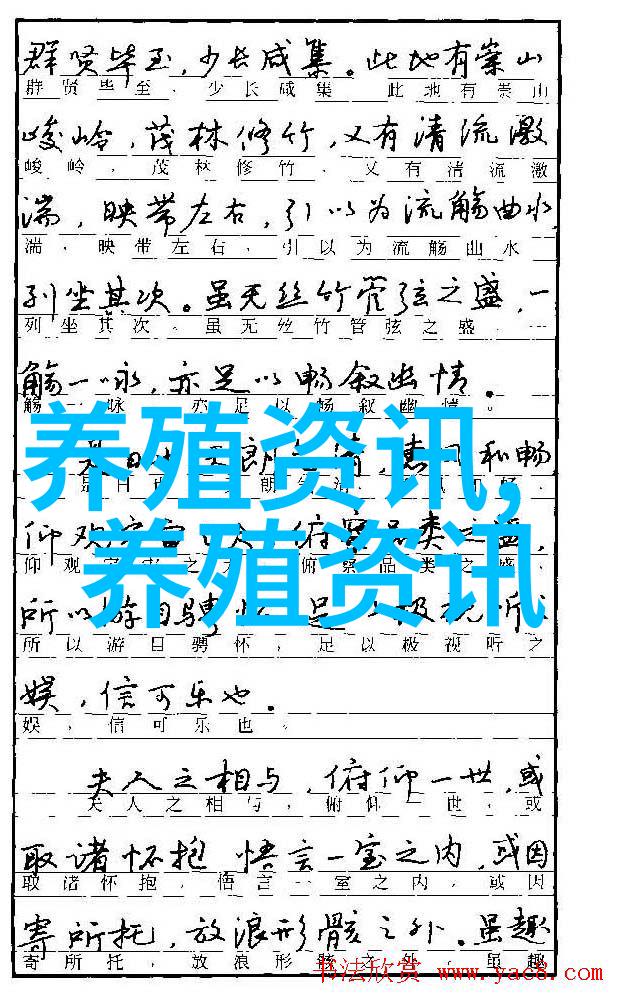 群贤毕至，少长咸集。此地有崇山
群贤毕至，少长咸集。此地有崇山
峻岭，茂林修竹，又有清流激
峻岭，茂林修竹，又有清流激
湍，映带左右，引以为流觞曲水，
湍，映带左右，引以为流觞曲水
列坐其次。虽无丝竹管弦之盛，一
列坐其次。虽无丝竹管弦之盛，一
觞一咏，亦足以畅叙幽情。
觞一咏，亦足以畅叙幽情。
养殖资讯,
养殖资讯
是日 朗 清，惠 和畅
是日 朗 清
仰观宇宙之大 俯察品类之盛，
仰观宇宙之大 俯察品类之盛，
所以游目骋怀，足以极视听之
所以游目骋怀，足以极视听之
娱，信可乐也。
娱，信可乐也。
夫人之相与，俯仰一世，或
夫人之相与，俯仰一世，或
取诸怀抱 悟言一室之内，或因
取诸怀抱，悟言一室之内，或因
寄所托，放浪形骸之外。虽趣
寄所托，放浪形骸之外。虽趣
书法欣赏 www.yac8.com